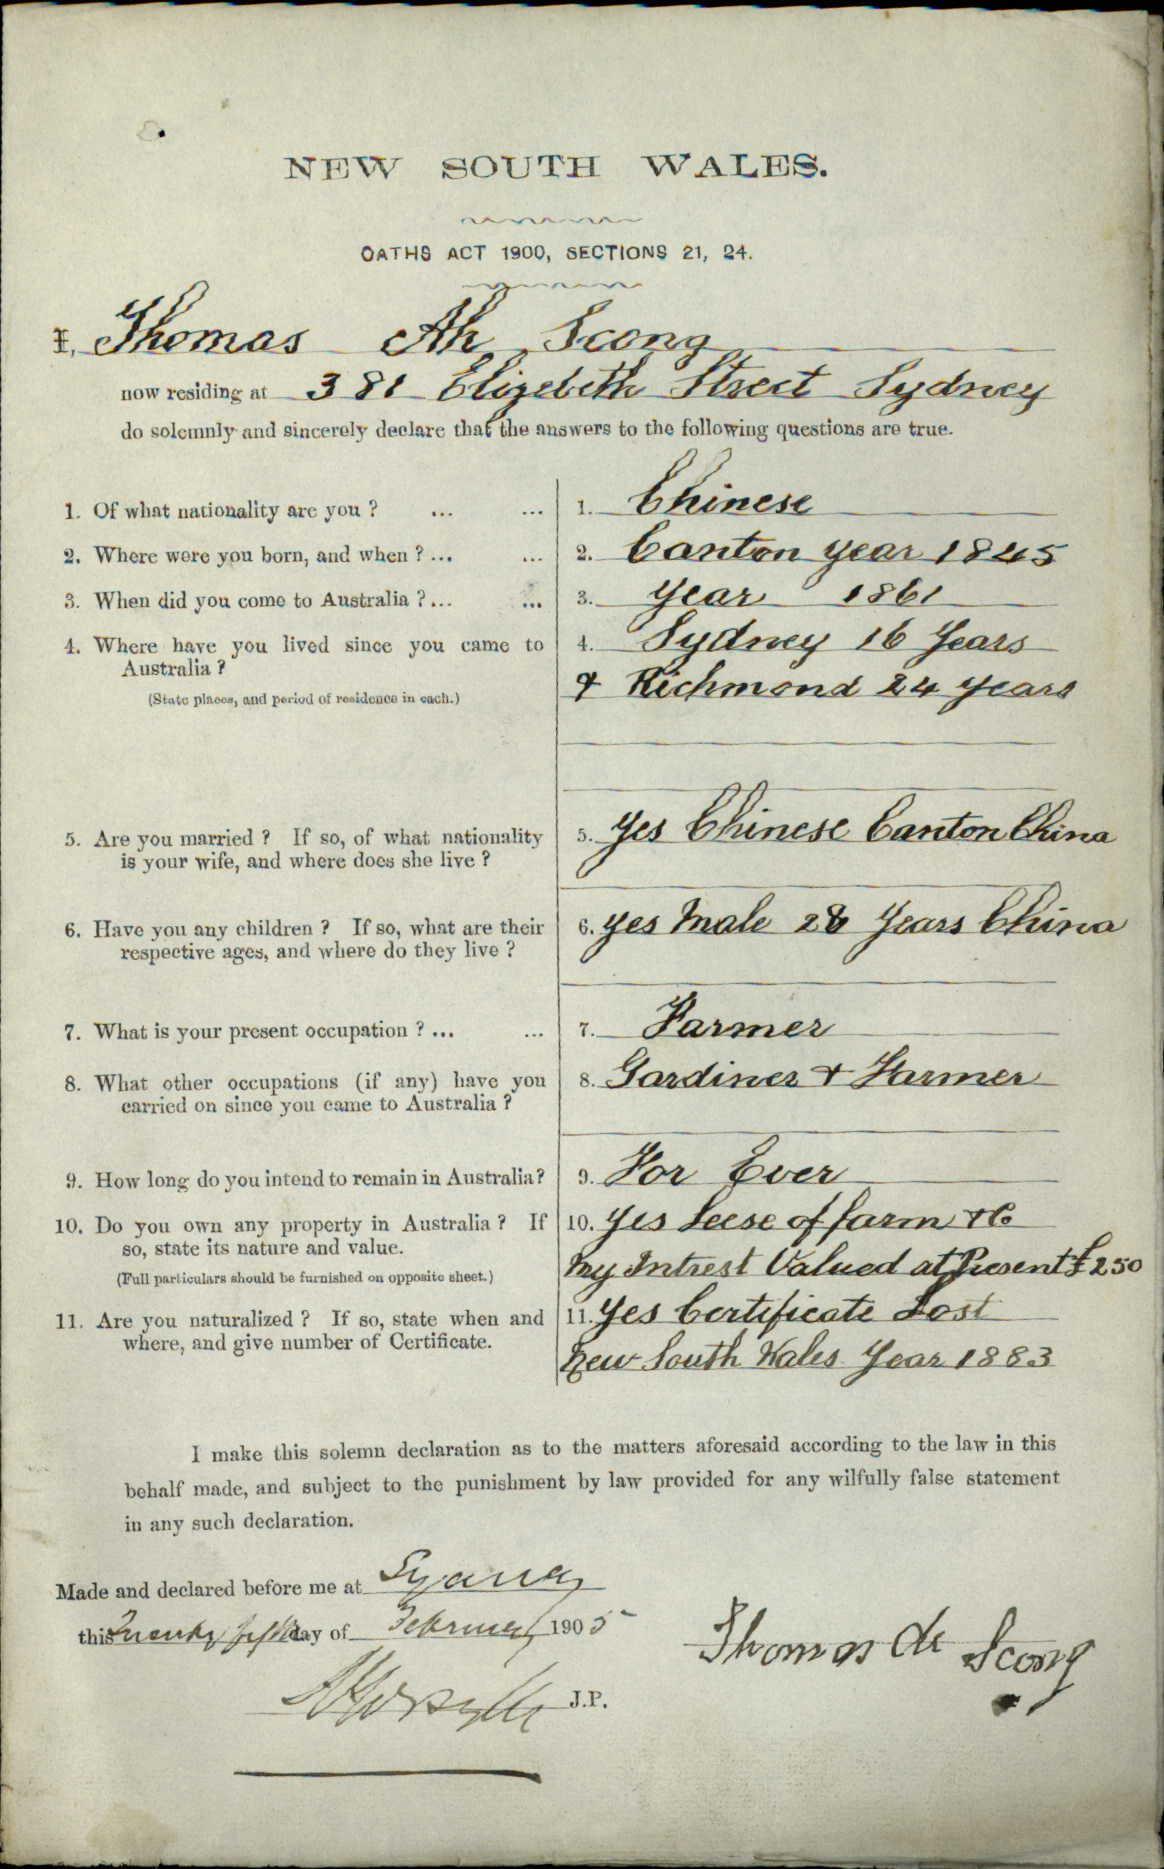 NEW SOUTH WALES.
OATHS ACT 1900, SECTIONS 21, 24.
I, Thomas Ah Scong
now residing at 381 Elizebeth Street Sydney
do solemnly and sincerely declare that the answers to the following questions are true.
1. Of what nationality are you ? ... ... 1. Chinese
2. Where were you born, and when ? ... ... 2. Canton year 1845
3. When did you come to Australia ? ... ... 3. Year 1861
4. Where have you lived since you came to 4. Sydney 16 Years
Australia ? & Richmond 24 years
(State places, and period of residence in each.)
5. Are you married ? If so, of what nationality 5. Yes Chinese Canton China
is your wife, and where does she live ?
6. Have you any children ? If so, what are their 6. Yes Male 28 Years China
respective ages, and where do they live ?
7. What is your present occupation ? ... ... 7. Farmer
8. What other occupations (if any) have you 8. Gardiner & Farmer
carried on since you came to Australia ?
9. How long do you intend to remain in Australia? 9. For Ever
10. Do you own any property in Australia ? If 10. Yes Leese of farm &c
so, state its nature and value.
(Full particulars should be furnished on opposite sheet.) My Intrest Valued at Present £250
11. Are you naturalized ? If so, state when and 11. Yes Certificate Lost
where, and give number of Certificate. New South Wales Year 1883
I make this solemn declaration as to the matters aforesaid according to the law in this
behalf made, and subject to the punishment by law provided for any wilfully false statement
in any such declaration.
Made and declared before me at Sydney
this Twenty fifth day of February 1905
Thomas Ah Scong
J.P.